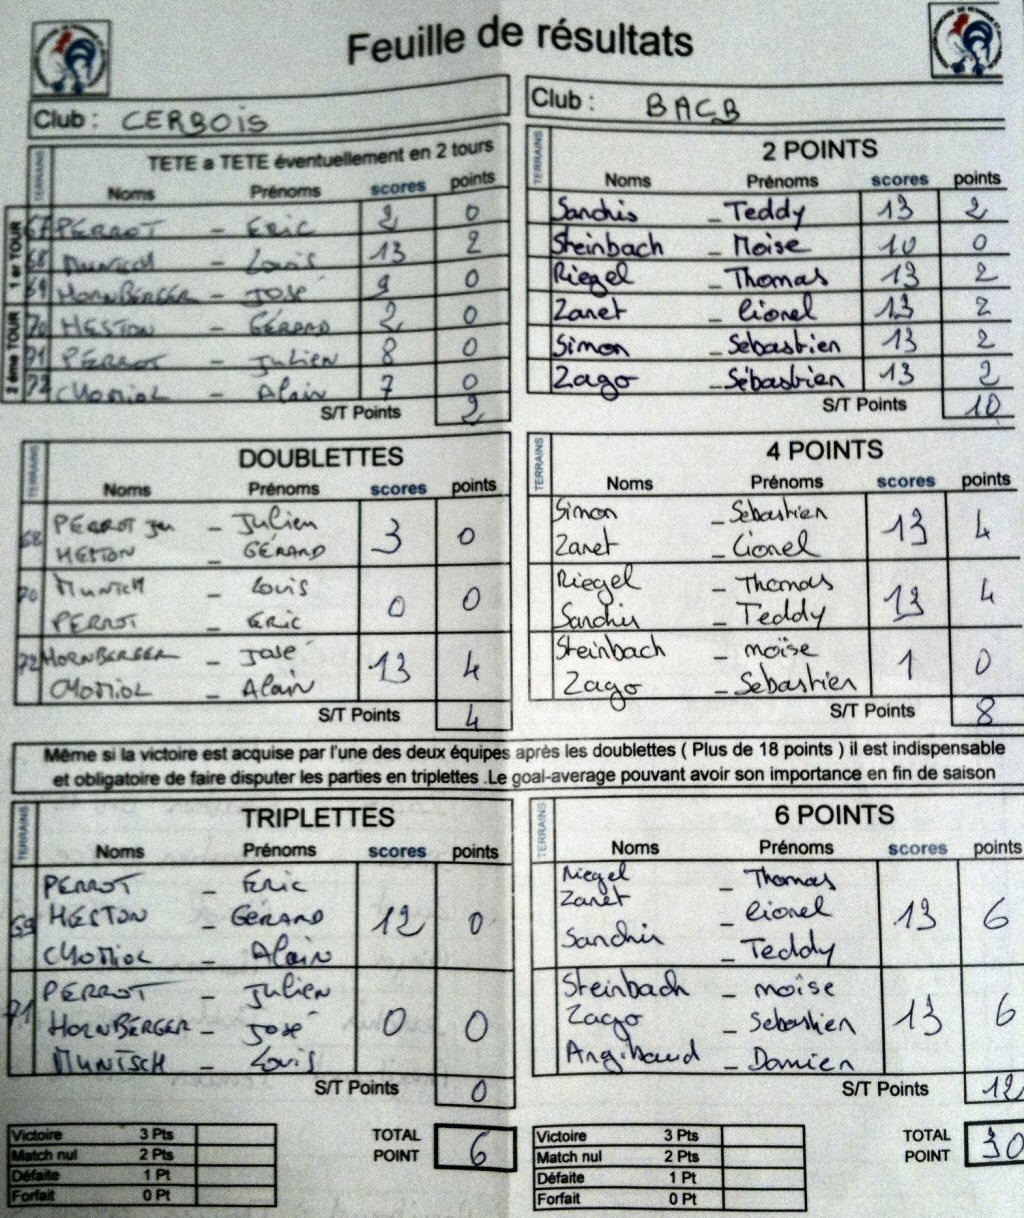 Feuille de résultats
Club : CERBOIS
Club : BACB
TERRAINS TETE a TETE éventuellement en 2 tours
Noms Prénoms scores points
1 er TOUR
67 PERROT - Eric 2 0
68 MUNTSCH - Louis 13 2
69 HORNBERGER - José 9 0
2 ème TOUR
70 HESTON - GÉRARD 2 0
71 PERROT - Julien 8 0
72 CHOMIOL - Alain 7 0
S/T Points 2
TERRAINS 2 POINTS
Noms Prénoms scores points
Sanchis - Teddy 13 2
Steinbach - Moise 10 0
Riegel - Thomas 13 2
Zanet - Lionel 13 2
Simon - Sebastien 13 2
Zago - Sébastien 13 2
S/T Points 10
TERRAINS DOUBLETTES
Noms Prénoms scores points
68 PERROT - Julien 3 0
HESTON - GÉRARD
70 MUNTSCH - Louis 0 0
PERROT - ERIC
72 HORNBERGER - José 13 4
CHOMIOL - Alain
S/T Points 4
TERRAINS 4 POINTS
Noms Prénoms scores points
Simon - Sebastien 13 4
Zanet - Lionel
Riegel - Thomas 13 4
Sanchis - Teddy
Steinbach - moïse 1 0
Zago - Sebastien
S/T Points 8
Même si la victoire est acquise par l'une des deux équipes après les doublettes ( Plus de 18 points ) il est indispensable
et obligatoire de faire disputer les parties en triplettes .Le goal-average pouvant avoir son importance en fin de saison
TERRAINS TRIPLETTES
Noms Prénoms scores points
69 PERROT - Eric 12 0
HESTON - GÉRARD
CHOMIOL - Alain
71 PERROT - Julien 0 0
HORNBERGER - José
MUNTSCH - Louis
S/T Points 0
TERRAINS 6 POINTS
Noms Prénoms scores points
Riegel - Thomas 13 6
Zanet - Lionel
Sanchis - Teddy
Steinbach - moïse 13 6
Zago - Sebastien
Angibaud - Damien
S/T Points 12
Victoire 3 Pts
Match nul 2 Pts
Défaite 1 Pt
Forfait 0 Pt
TOTAL
POINT 6
Victoire 3 Pts
Match nul 2 Pts
Défaite 1 Pt
Forfait 0 Pt
TOTAL
POINT 30